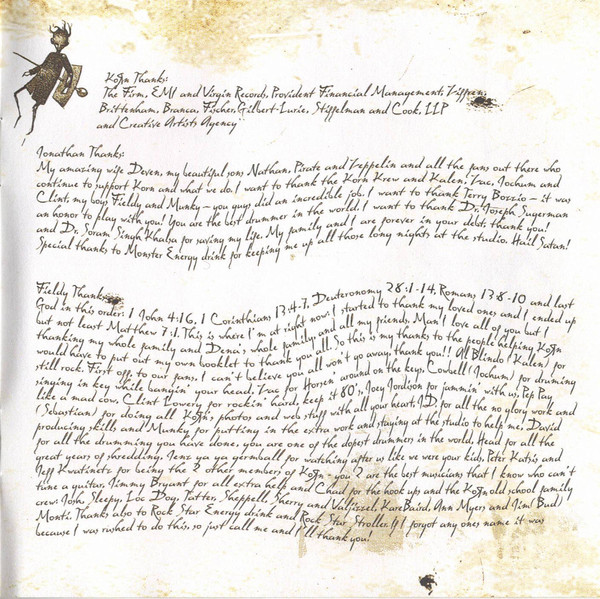 KoЯn Thanks:
The Firm, EMI and Virgin Records, Provident Financial Management, Ziffren,
Brittenham, Branca, Fischer, Gilbert-Lurie, Stiffelman and Cook, LLP
and Creative Artists Agency
Jonathan Thanks:
My amazing wife Deven, my beautiful sons Nathan, Pirate and Zeppelin and all the fans out there who
continue to support Korn and what we do. I want to thank the Korn Krew and Kalen, Zac, Jochum and
Clint, my boys Fieldy and Munky - you guys did an incredible job. I want to thank Terry Bozzio - it was
an honor to play with you! You are the best drummer in the world. I want to thank Dr. Joseph Sugerman
and Dr. Soram Singh Khalsa for saving my life. My family and I are forever in your debt, thank you!
Special thanks to Monster Energy drink for keeping me up all those long nights at the studio. Hail Satan!
Fieldy Thanks:
God in this order: 1 John 4:16, 1 Corinthians 13:4-7, Deuteronomy 28:1-14, Romans 13:8-10 and last
but not least Matthew 7:1. This is where I'm at right now! I started to thank my loved ones and I ended up
thanking my whole family and Dena's whole family and all my friends. Man I love all of you but I
would have to put out my own booklet to thank you all. So this is my thanks to the people helping KoЯn
still rock. First off, to our fans, I can't believe you all won't go away, thank you!! Al Blindo (Kalen) for
singing in key while bangin' your head, Zac for Horsen' around on the keys, Cowbell (Jochum) for druming
like a mad cow, Clint Lowery for rockin' hard, keep it 80's, Joey Jordison for jammin' with us, Pep Pay
(Sebastian) for doing all KoЯn's photos and web stuff with all your heart, J.D. for all the no glory work and
producing skills and Munky for putting in the extra work and staying at the studio to help me, David
for all the drumming you have done, you are one of the dopest drummers in the world, Head for all the
great years of shredding, Jenz ya ya germball for watching after us like we were your kids, Peter Katsis and
Jeff Kwatinetz for being the 2 other members of KoЯn - you 2 are the best musicians that I know who can't
tune a guitar, Jimmy Bryant for all extra help and Chad for the hook up and the KoЯn old school family
crew: Josh, Sleepy, Loc Dog, Tatter, Sheppell, Sherry and Valjizzel, KareBaird, Ann Myers and Jim (Bud)
Monti. Thanks also to Rock Star Energy drink and Rock Star Stroller. If I forgot any ones name it was
because I was rushed to do this, so just call me and I'll thank you!